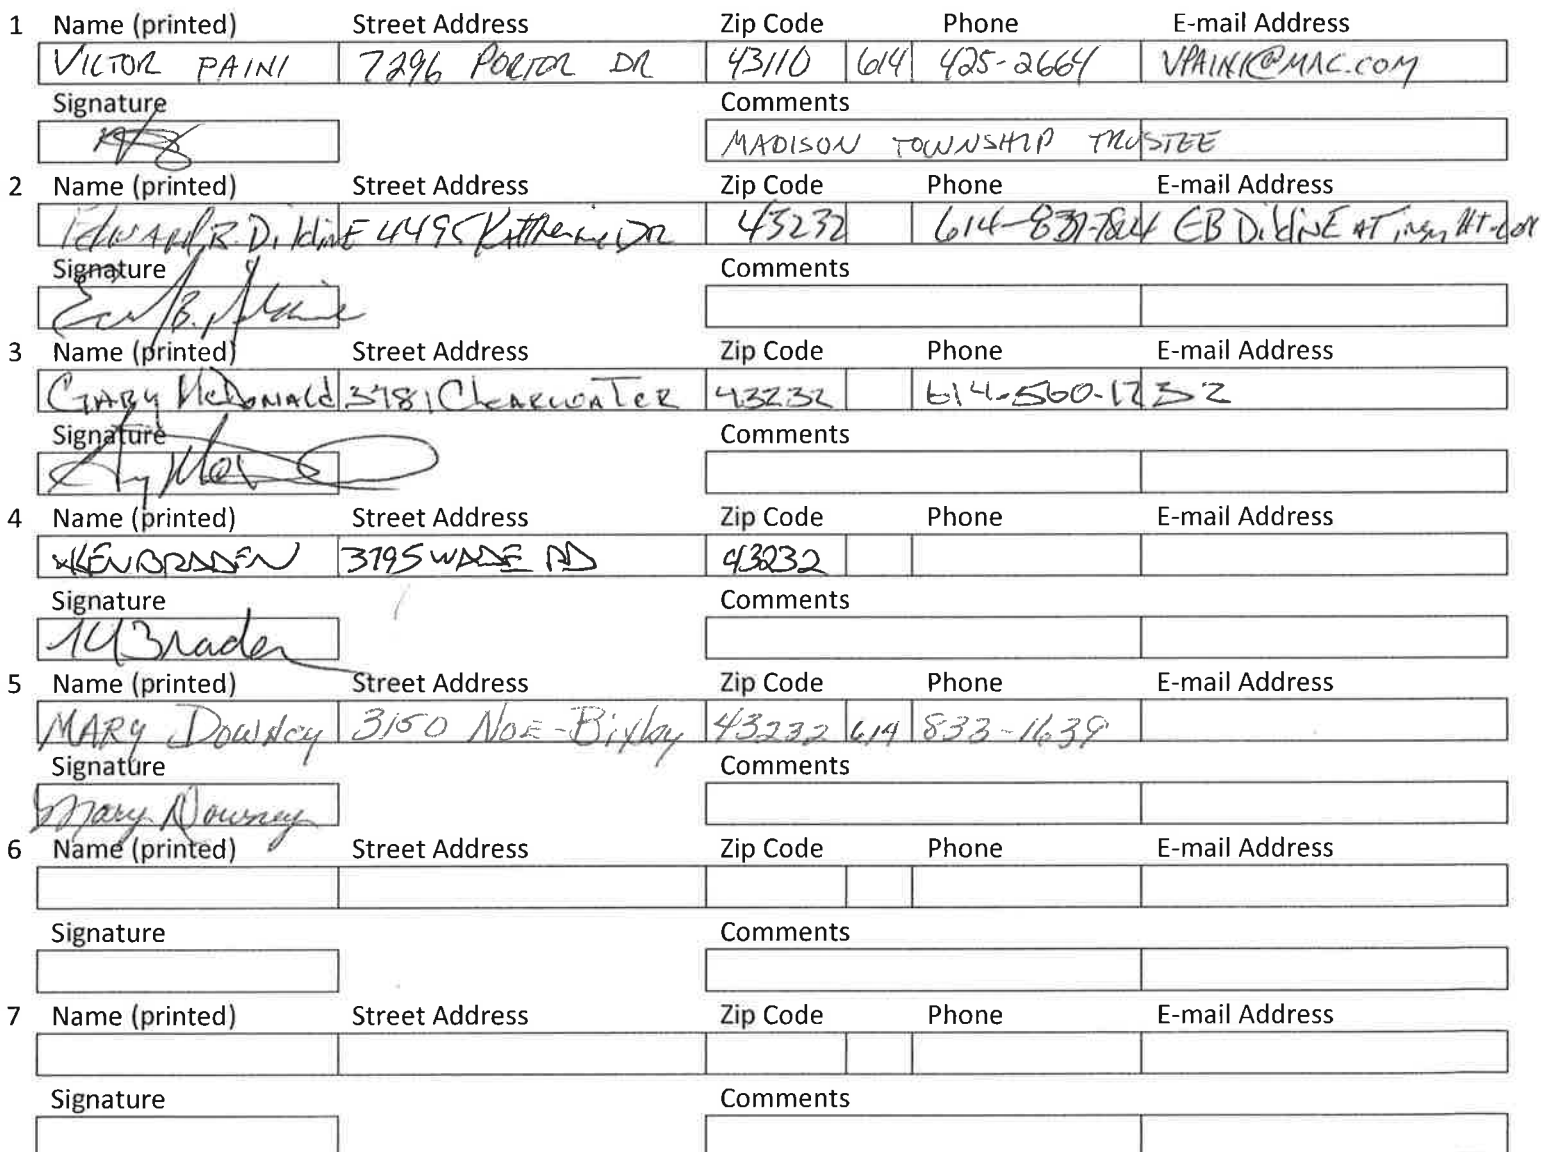 1 Name (printed) Street Address Zip Code Phone E-mail Address
VICTOR PAINI 7296 PORTOR DR 43110 614 425-2664 VPAINI@MAC.COM
Signature Comments
MADISON TOWNSHIP TRUSTEE
2 Name (printed) Street Address Zip Code Phone E-mail Address
EDWARD B. DildinE 4495 Katherine DR 43232 614-837-7824 EB DildinE AT
Signature Comments
3 Name (printed) Street Address Zip Code Phone E-mail Address
GARY McDONALD 3781 CLEARWATER 43232 614-560-1232
Signature Comments
4 Name (printed) Street Address Zip Code Phone E-mail Address
KEN BRADEN 3795 WADE RD 43232
Signature Comments
Braden
5 Name (printed) Street Address Zip Code Phone E-mail Address
MARY DOWNEY 3150 NOE-Bixby 43232 614 833-1639
Signature Comments
Mary Downey
6 Name (printed) Street Address Zip Code Phone E-mail Address
Signature Comments
7 Name (printed) Street Address Zip Code Phone E-mail Address
Signature Comments